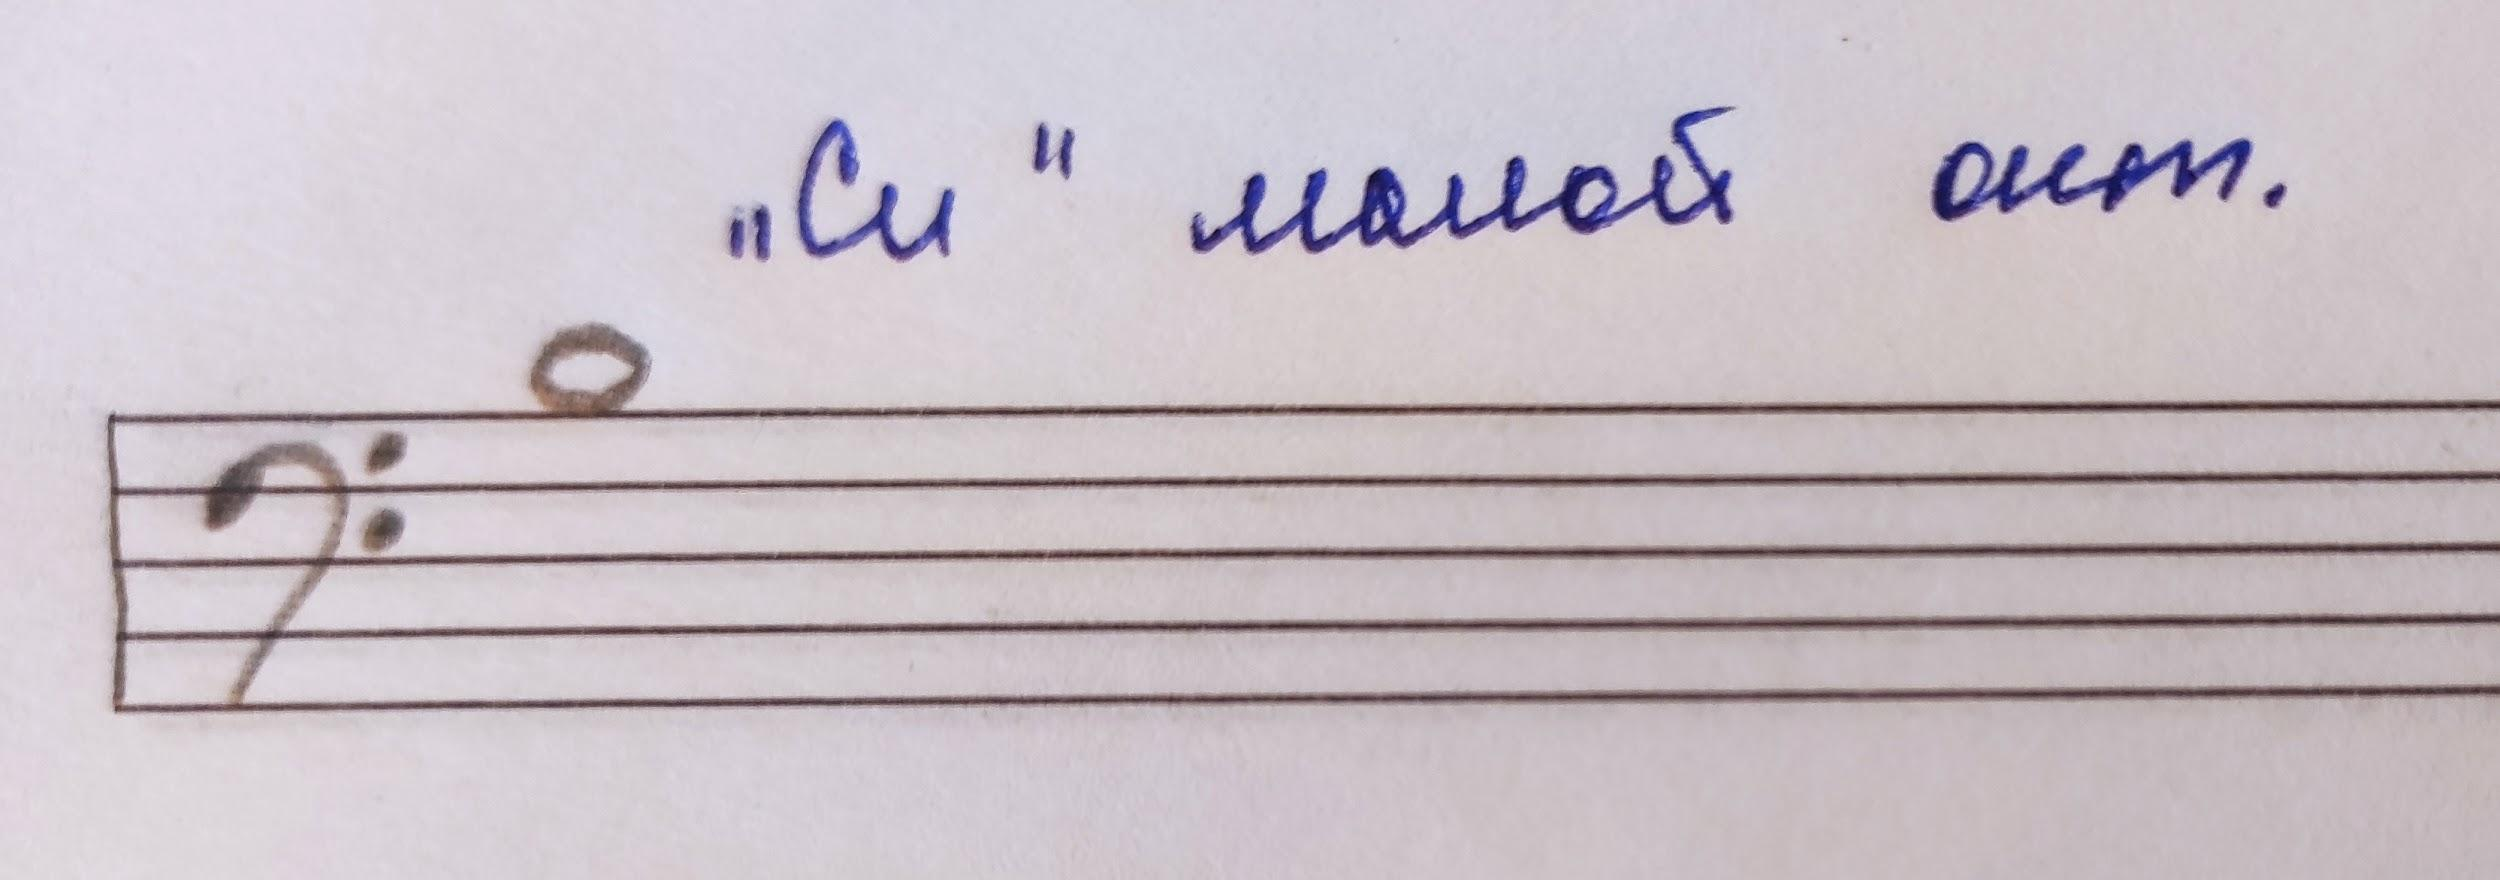 „Си" малой окт.